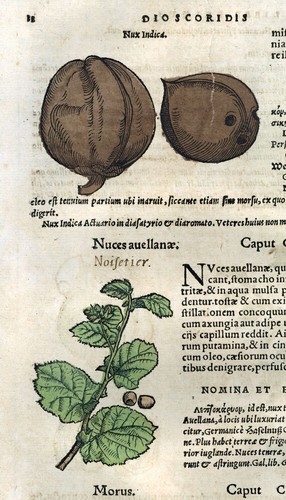 18
DIOSCORIDIS
Nux Indica.
oleo est tenuium partium ubi inaruit, siccante etiam sine morsu, ex quo
digerit.
Nux Indica Actuario in diasatyrio & diaromato. Veteres huius non m
Nuces auellanæ.
Caput C
Noisetier.
NVces auellanæ, qu
cant, stomacho in
tritæ, & in aqua mulsa p
dentur. tostæ & cum exi
stillationem concoquun
cum axungia aut adipe u
cijs capillum reddit. Ai
rum putamina, & in cin
cum oleo, cæsiorum ocu
tibus denigrare, perfuso
NOMINA ET E
Λεπτοκάρυον, id est, nux t
Auellana, à locis ubi luxuriat
citur, Germanicè Haselnuß G
ne. Plus habet terreæ & frigi
rior iuglande. Nuces tenera,
runt & astringunt. Gal. lib. G
Morus.
Caput C